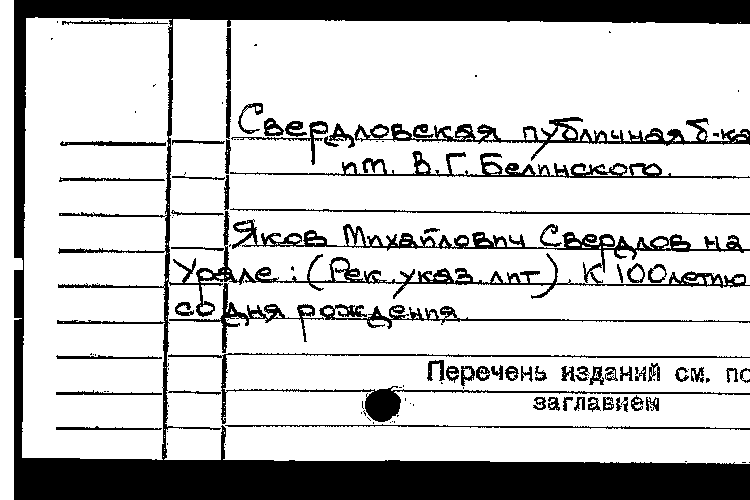 Свердловская публичная б-ка
им. В.Г. Белинского.
Яков Михайлович Свердлов на
Урале : (Рек. указ. лит). К 100летию
со дня рождения.
Перечень изданий см. по
заглавием